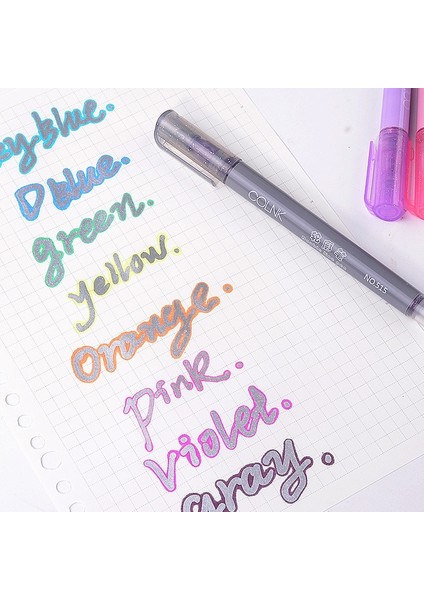 ky blue.
Dblue.
green.
yellow.
Orange.
Pink.
violet.
gray.
COLNK
NO 515